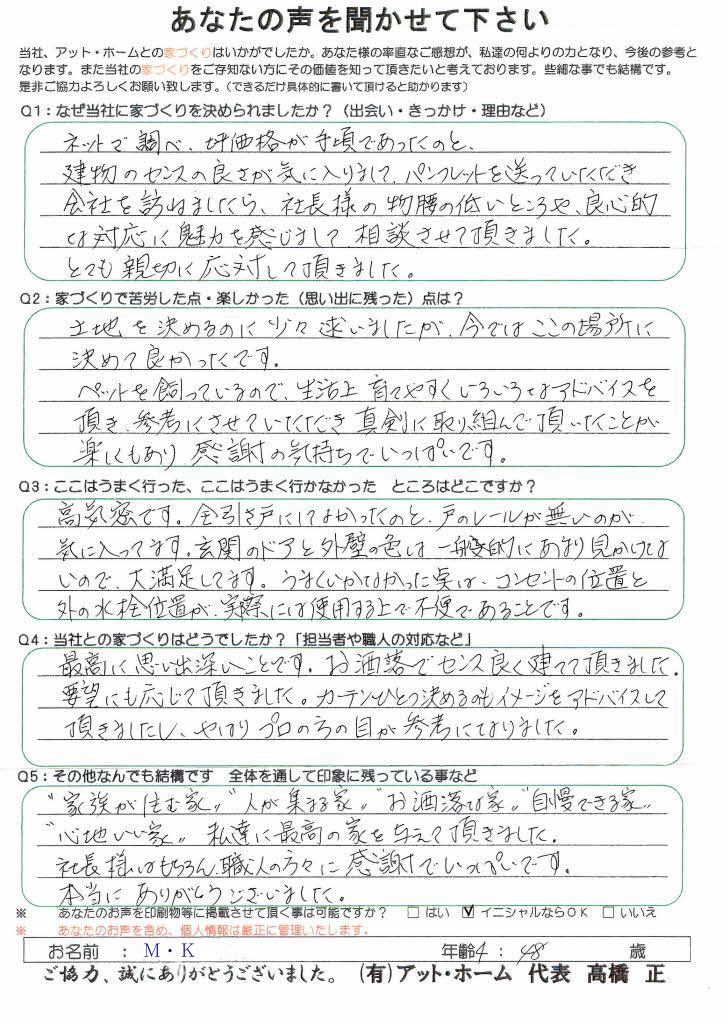 あなたの声を聞かせて下さい
当社、アット・ホームとの家づくりはいかがでしたか。あなた様の率直なご感想が、私達の何よりの力となり、今後の参考と
なります。また当社の家づくりをご存知ない方にその価値を知って頂きたいと考えております。些細な事でも結構です。
是非ご協力よろしくお願い致します。（できるだけ具体的に書いて頂けると助かります）
Q1：なぜ当社に家づくりを決められましたか？（出会い・きっかけ・理由など）
ネットで調べ、坪価格が手頃であったのと、
建物のセンスの良さが気に入りまして、パンフレットを送っていただき
会社を訪ねましたら、社長様の物腰の低いところや、良心的
な対応に魅力を感じまして相談させて頂きました。
とても親切に応対して頂きました。
Q2：家づくりで苦労した点・楽しかった（思い出に残った）点は？
土地を決めるのに少々迷いましたが、今ではここの場所に
決めて良かったです。
ペットを飼っているので、生活上育てやすくいろいろなアドバイスを
頂き、参考にさせていただき真剣に取り組んで頂いたことが
楽しくもあり感謝の気持ちでいっぱいです。
Q3：ここはうまく行った、ここはうまく行かなかった　ところはどこですか？
高気密です。全引き戸にしてよかったのと、戸のレールが無いのが
気に入ってます。玄関のドアと外壁の色は一般的にあまり見かけな
いので、大満足してます。うまくいかなかった点は、コンセントの位置と
外の水栓位置が、実際には使用する上で不便であることです。
Q4：当社との家づくりはどうでしたか？「担当者や職人の対応など」
最高に思い出深いことです。お洒落でセンス良く建てて頂きました。
要望にも応じて頂きました。カーテンひとつ決めるのもイメージをアドバイスして
頂きましたし、やはりプロの方の目が参考になりました。
Q5：その他なんでも結構です　全体を通して印象に残っている事など
"家族が住む家〃"人が集まる家〃"お洒落な家〃"自慢できる家〃
"心地いい家〃 私達に最高の家を与えて頂きました。
社長様はもちろん、職人の方々に感謝でいっぱいです。
本当にありがとうございました。
※　あなたのお声を印刷物等に掲載させて頂く事は可能ですか？　□はい　☑イニシャルならOK　□いいえ
※　あなたのお声を含め、個人情報は厳正に管理いたします。
お名前　：　M・K　年齢　：　48　歳
ご協力、誠にありがとうございました。（有）アット・ホーム　代表　高橋　正